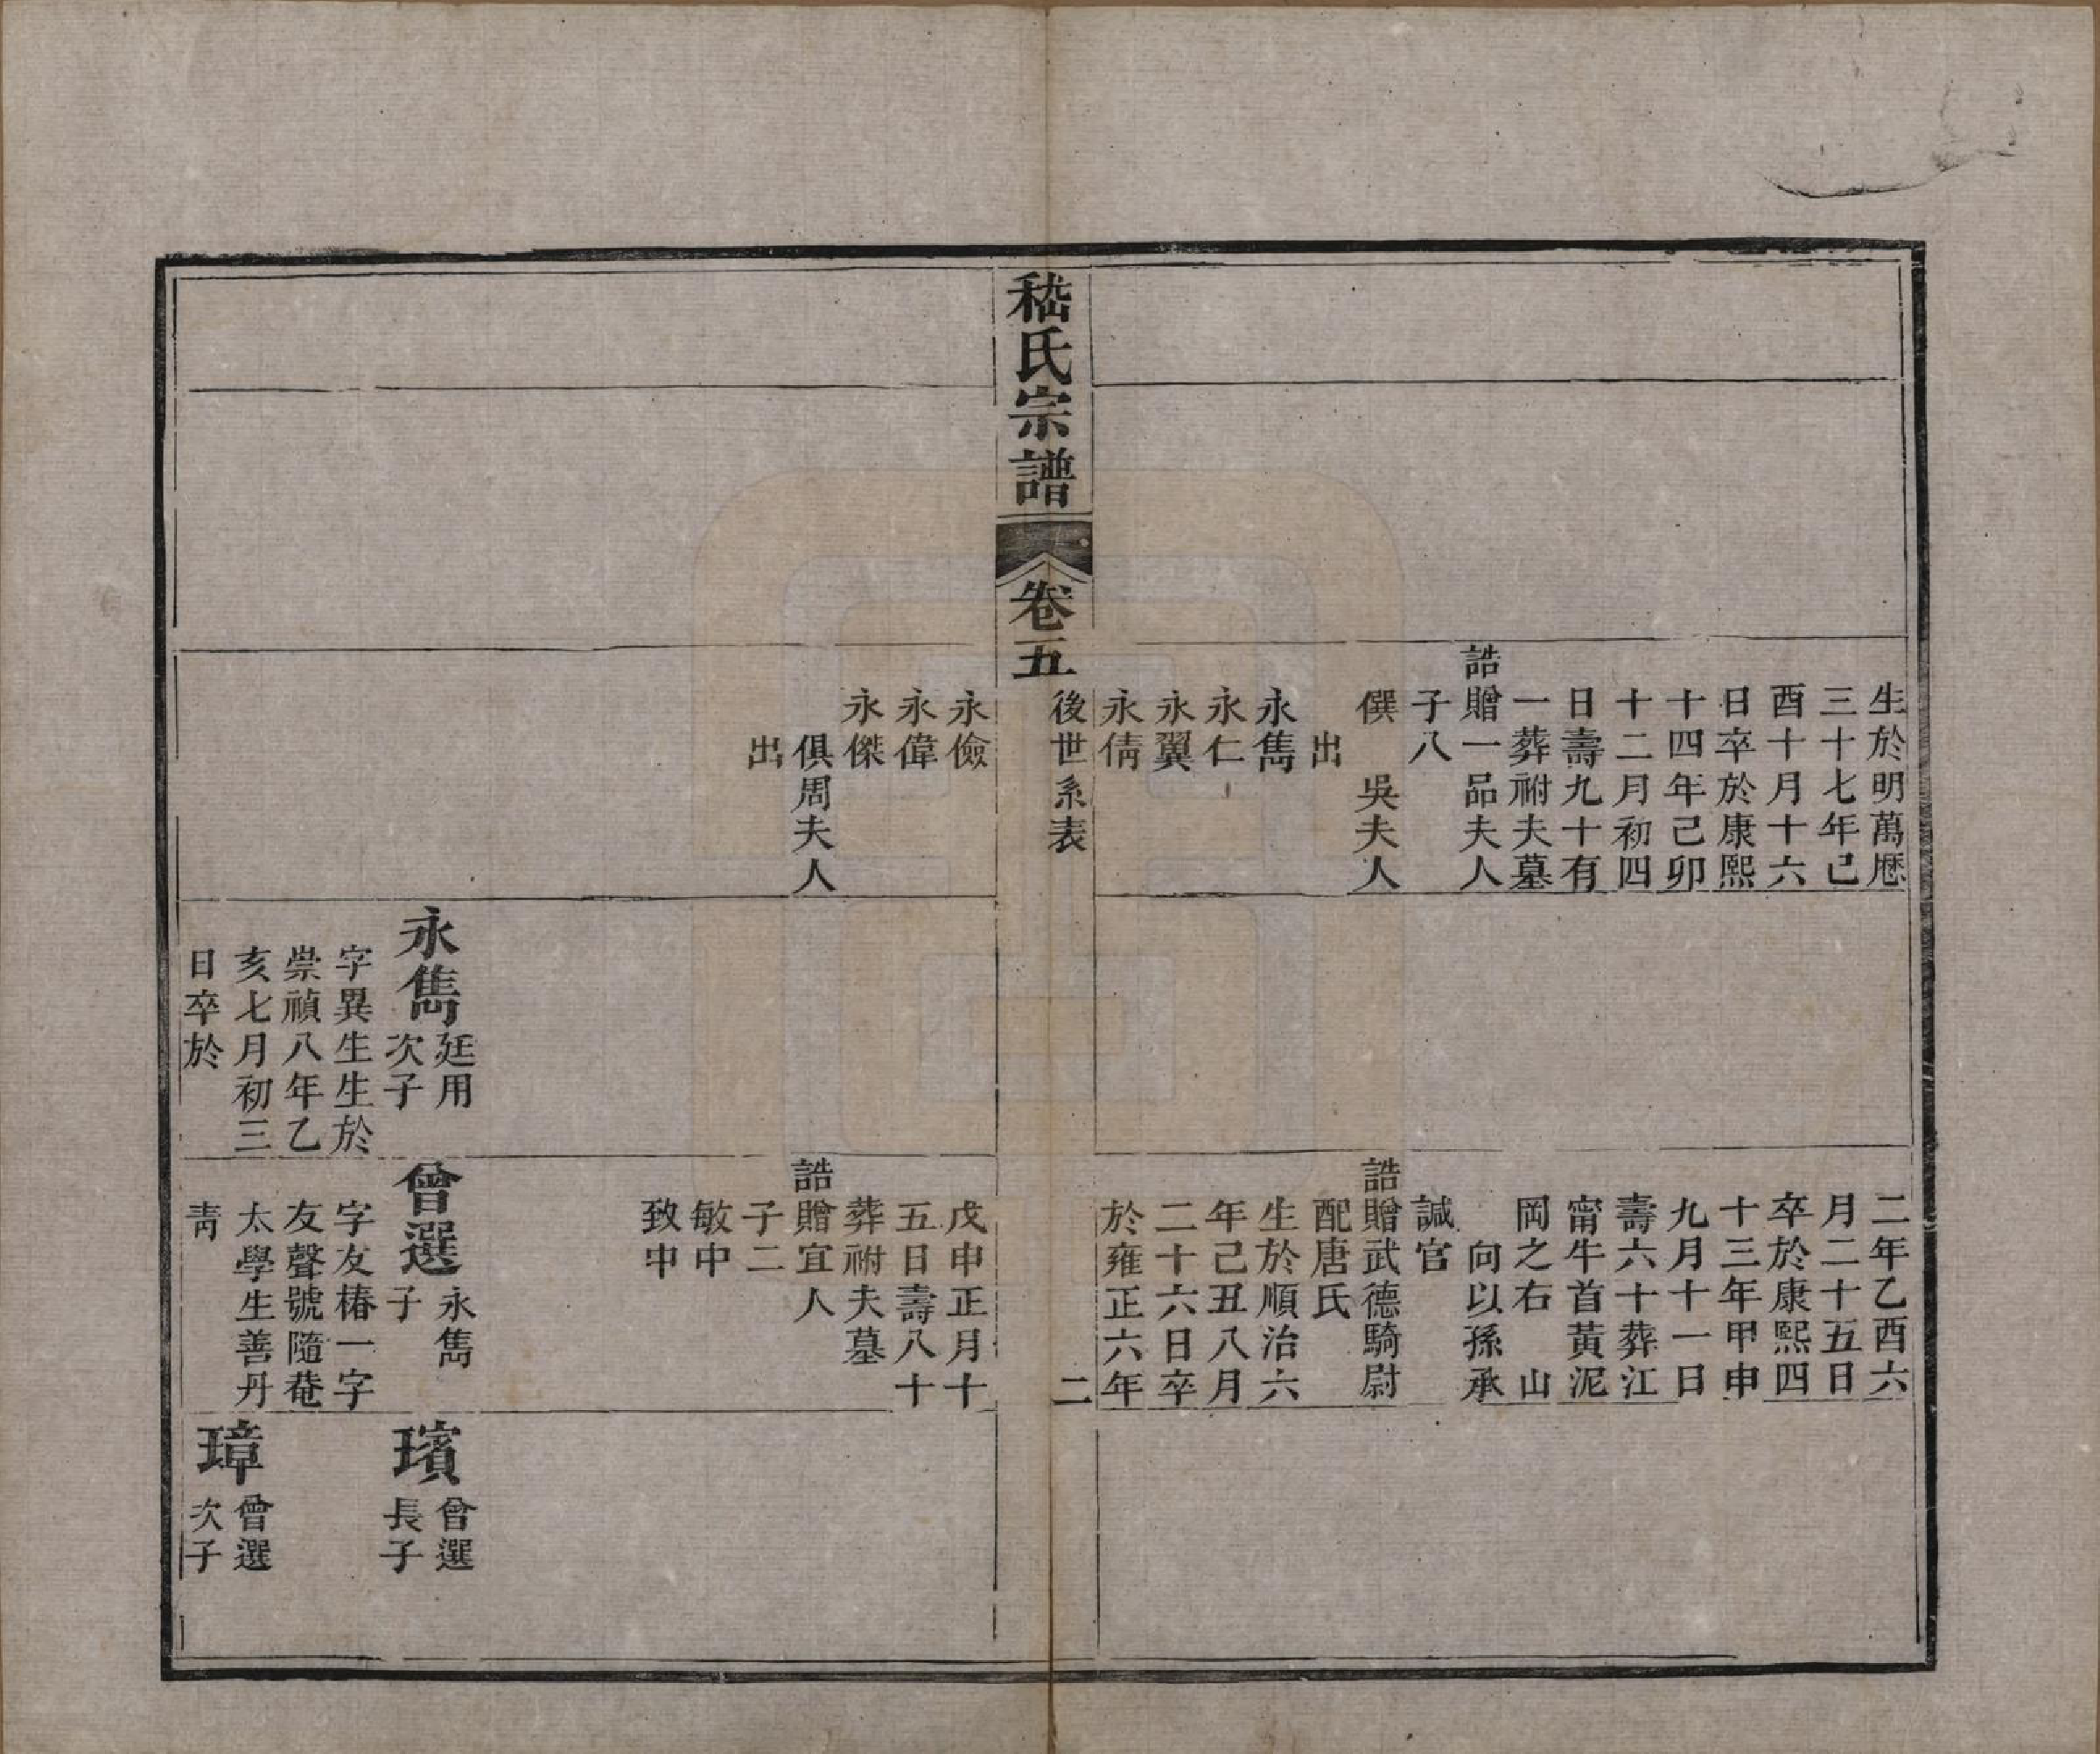 生於明萬厯
三十七年己
酉十月十六
日卒於康熙
十四年己卯
十二月初四
日壽九十有
一葬祔夫墓
誥贈一品夫人
子八
僎　吳夫人
出
永雋
永仁
永翼
永倩
二年乙酉六
月二十五日
卒於康熙四
十三年甲申
九月十一日
壽六十葬江
甯牛首黃泥
岡之右　山
向以孫承
諴官
誥贈武德騎尉
配唐氏
生於順治六
年己丑八月
二十六日卒
於雍正六年
嵇氏宗譜
卷五
後世系表
二
永儉
永偉
永傑
俱周夫人
出
永雋
廷用
次子
字異生生於
崇禎八年乙
亥七月初三
日卒於
戊申正月十
五日壽八十
葬祔夫墓
誥贈宜人
子二
敏中
致中
曾選
永雋
子
字友椿一字
友聲號隨菴
太學生善丹
靑
璸
曾選
長子
璋
曾選
次子